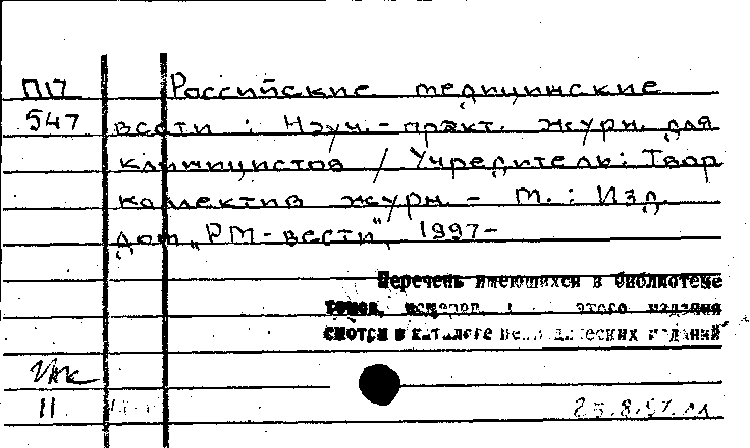 П17 Российские медицинские
547 вести : Науч.-практ. журн. для
клиницистов / Учредитель: Твор
коллектив журн. - М. : Изд.
дом „РМ-вести", 1997-
Перечень имеющихся в библиотеке
томов, номеров, этого издания
смотри в каталоге периодических изданий
11